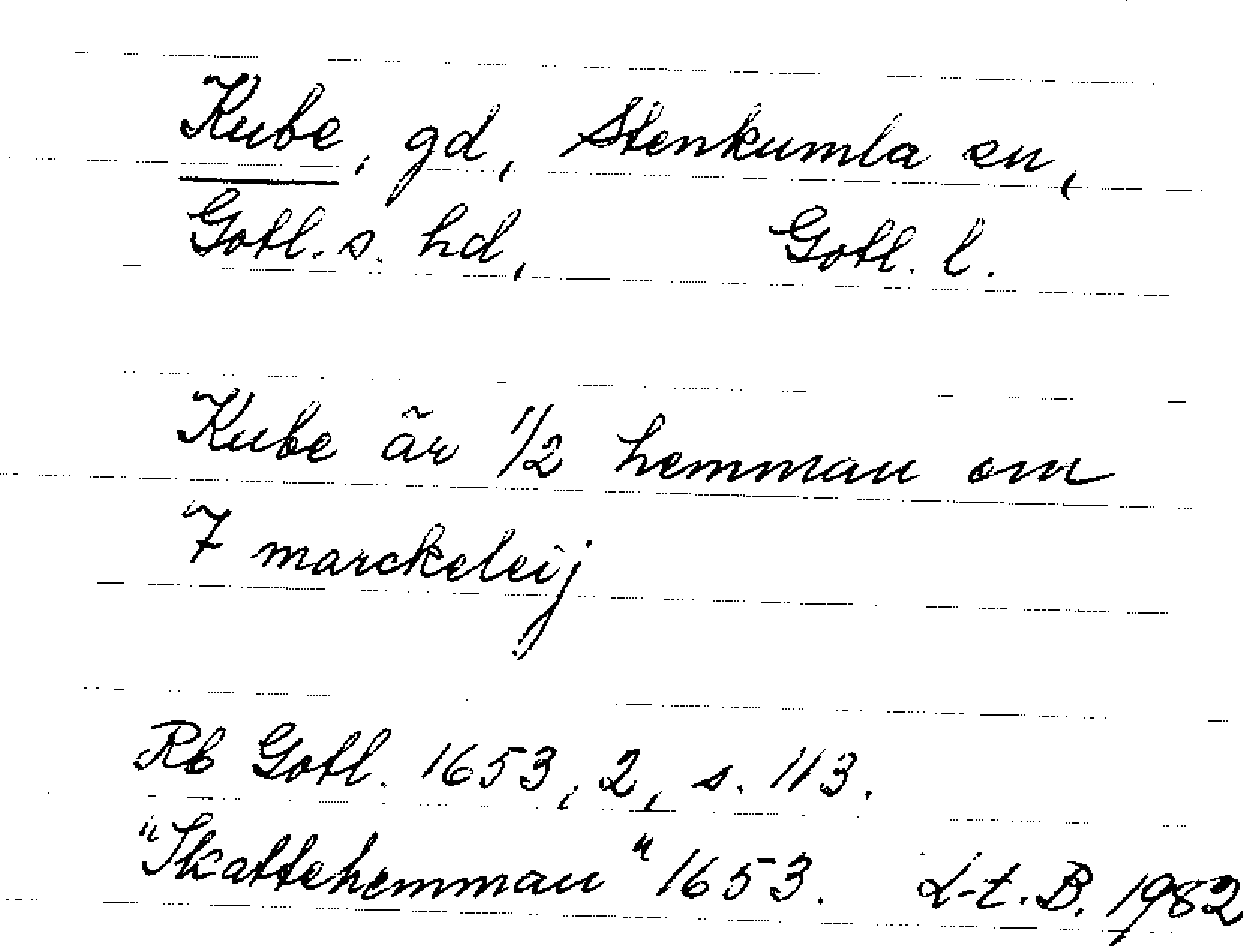 Kube, gd, Stenkumla sn,
Gotl. s. hd, Gotl. l.
Kube är 1/2 hemman om
7 marckeleij
Rb Gotl. 1653, 2, s. 113.
"Skattehemman" 1653. L-t. B. 1982